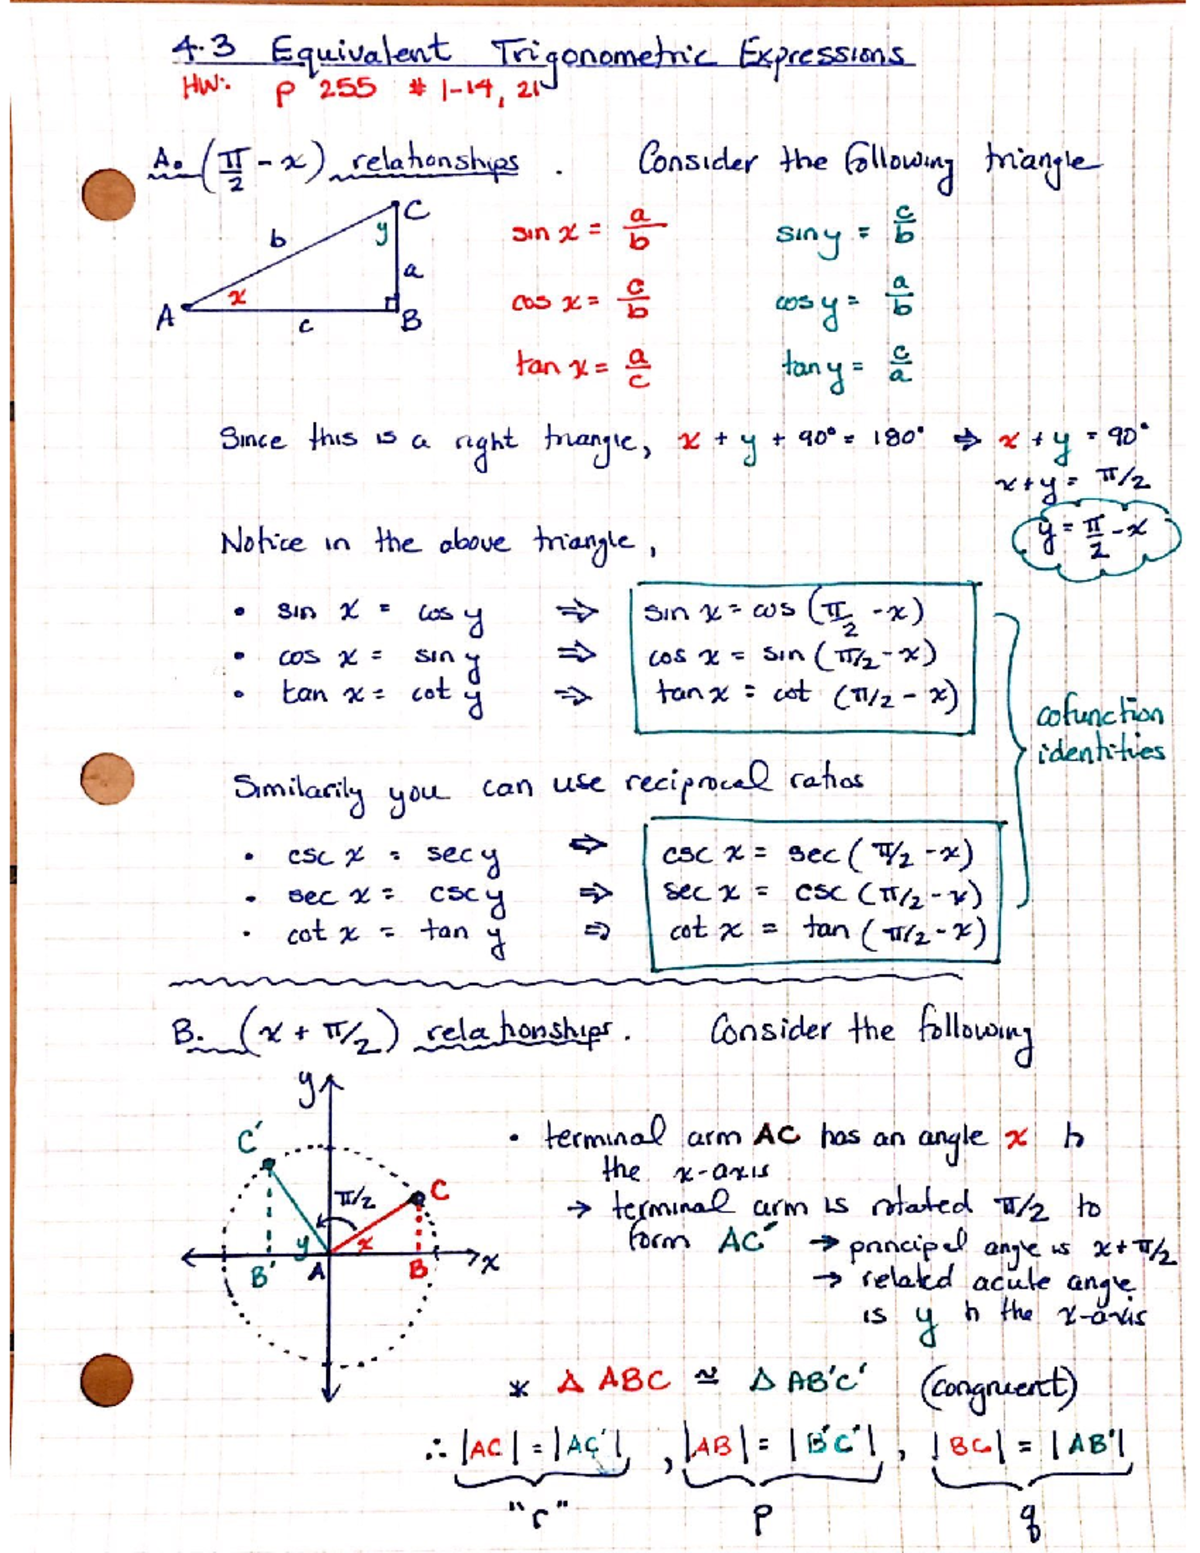 4.3 Equivalent Trigonometric Expressions
HW: p 255 # 1-14, 21
A. (π/2 - x) relationships. Consider the following triangle
C
y
b
a
x
A
c
B
sin x = a/b
sin y = c/b
cos x = c/b
cos y = a/b
tan x = a/c
tan y = c/a
Since this is a right triangle, x + y + 90° = 180° ⇒ x + y = 90°
x + y = π/2
y = π/2 - x
Notice in the above triangle,
• sin x = cos y ⇒ sin x = cos (π/2 - x)
• cos x = sin y ⇒ cos x = sin (π/2 - x)
• tan x = cot y ⇒ tan x = cot (π/2 - x)
cofunction
identities
Similarily you can use reciprocal ratios
• csc x = sec y ⇒ csc x = sec (π/2 - x)
• sec x = csc y ⇒ sec x = csc (π/2 - x)
• cot x = tan y ⇒ cot x = tan (π/2 - x)
B. (x + π/2) relationships. Consider the following
y
C'
π/2
C
y
x
x
B'
A
B
• terminal arm AC has an angle x to
the x-axis
→ terminal arm is rotated π/2 to
form AC' → principal angle is x + π/2
→ related acute angle
is y to the x-axis
* Δ ABC ≅ Δ AB'C' (congruent)
∴ |AC| = |AC'|, |AB| = |B'C'|, |BC| = |AB'|
"r" p q